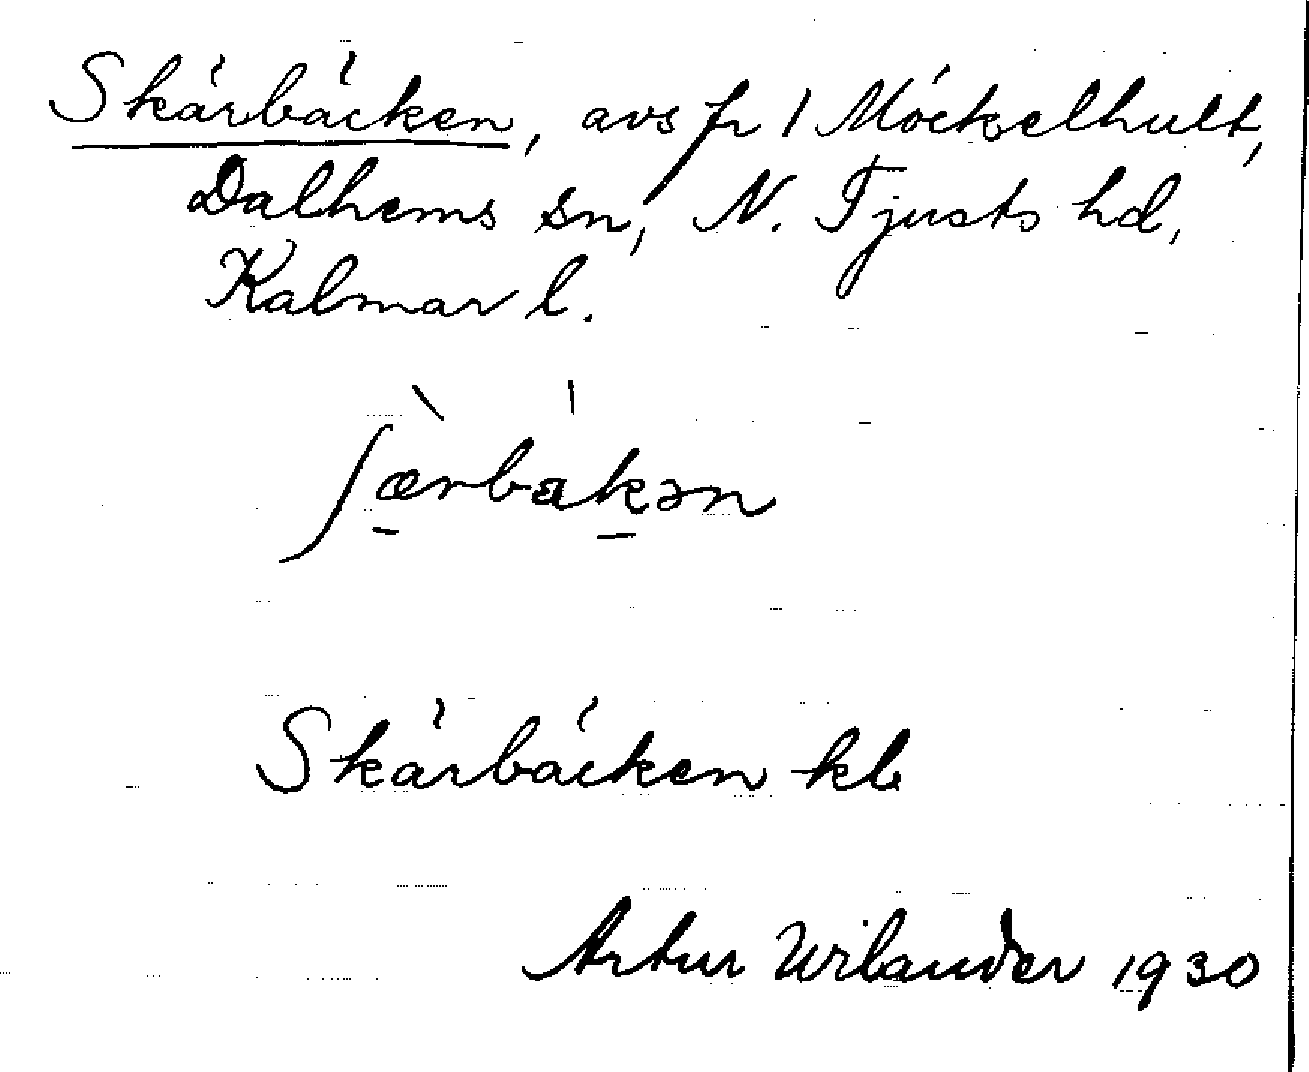 Skärbäcken, avs fr 1 Möckelhult,
Dalhems sn, N. Tjusts hd,
Kalmar l.
ʃæ̀rbákən
Skärbäcken kb
Artur Wilander 1930